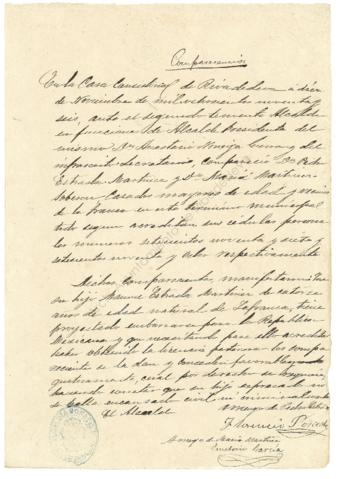 Comparecencia
En la Casa Consistorial de Rivadedeva á diez
de Noviembre de mil ochocientos noventa y
seis, ante el segundo teniente Alcalde
en funciones de Alcalde Presidente del
mismo Dn Anastasio Noriega y
del infrascrito Secretario, compareció Dn Pedro
Estrada Martinez y Dª Maria Martinez
casados mayores de edad y vecinos
de la Franca en este término municipal
todo segun acreditan sus cédulas persona
les números setecientos noventa y siete y
setecientos noventa y ocho respectivamente
Dichos comparecientes manifestaron: Que
su hijo Manuel Estrada Martinez de catorce
años de edad natural de La Franca, tiene
proyectado embarcarse para la República
Mexicana y que necesitando para ello acreditar
haber obtenido la licencia paterna los compa
recientes se la dan y conceden
gustosamente, cual por derecho se requiere
haciendo constar que su hijo expresado no
se halla encausado civil ni criminalmente
El Alcalde
A ruego de Pedro Estrada
Florencio
A ruego de Maria Martinez
Emeterio Garcia